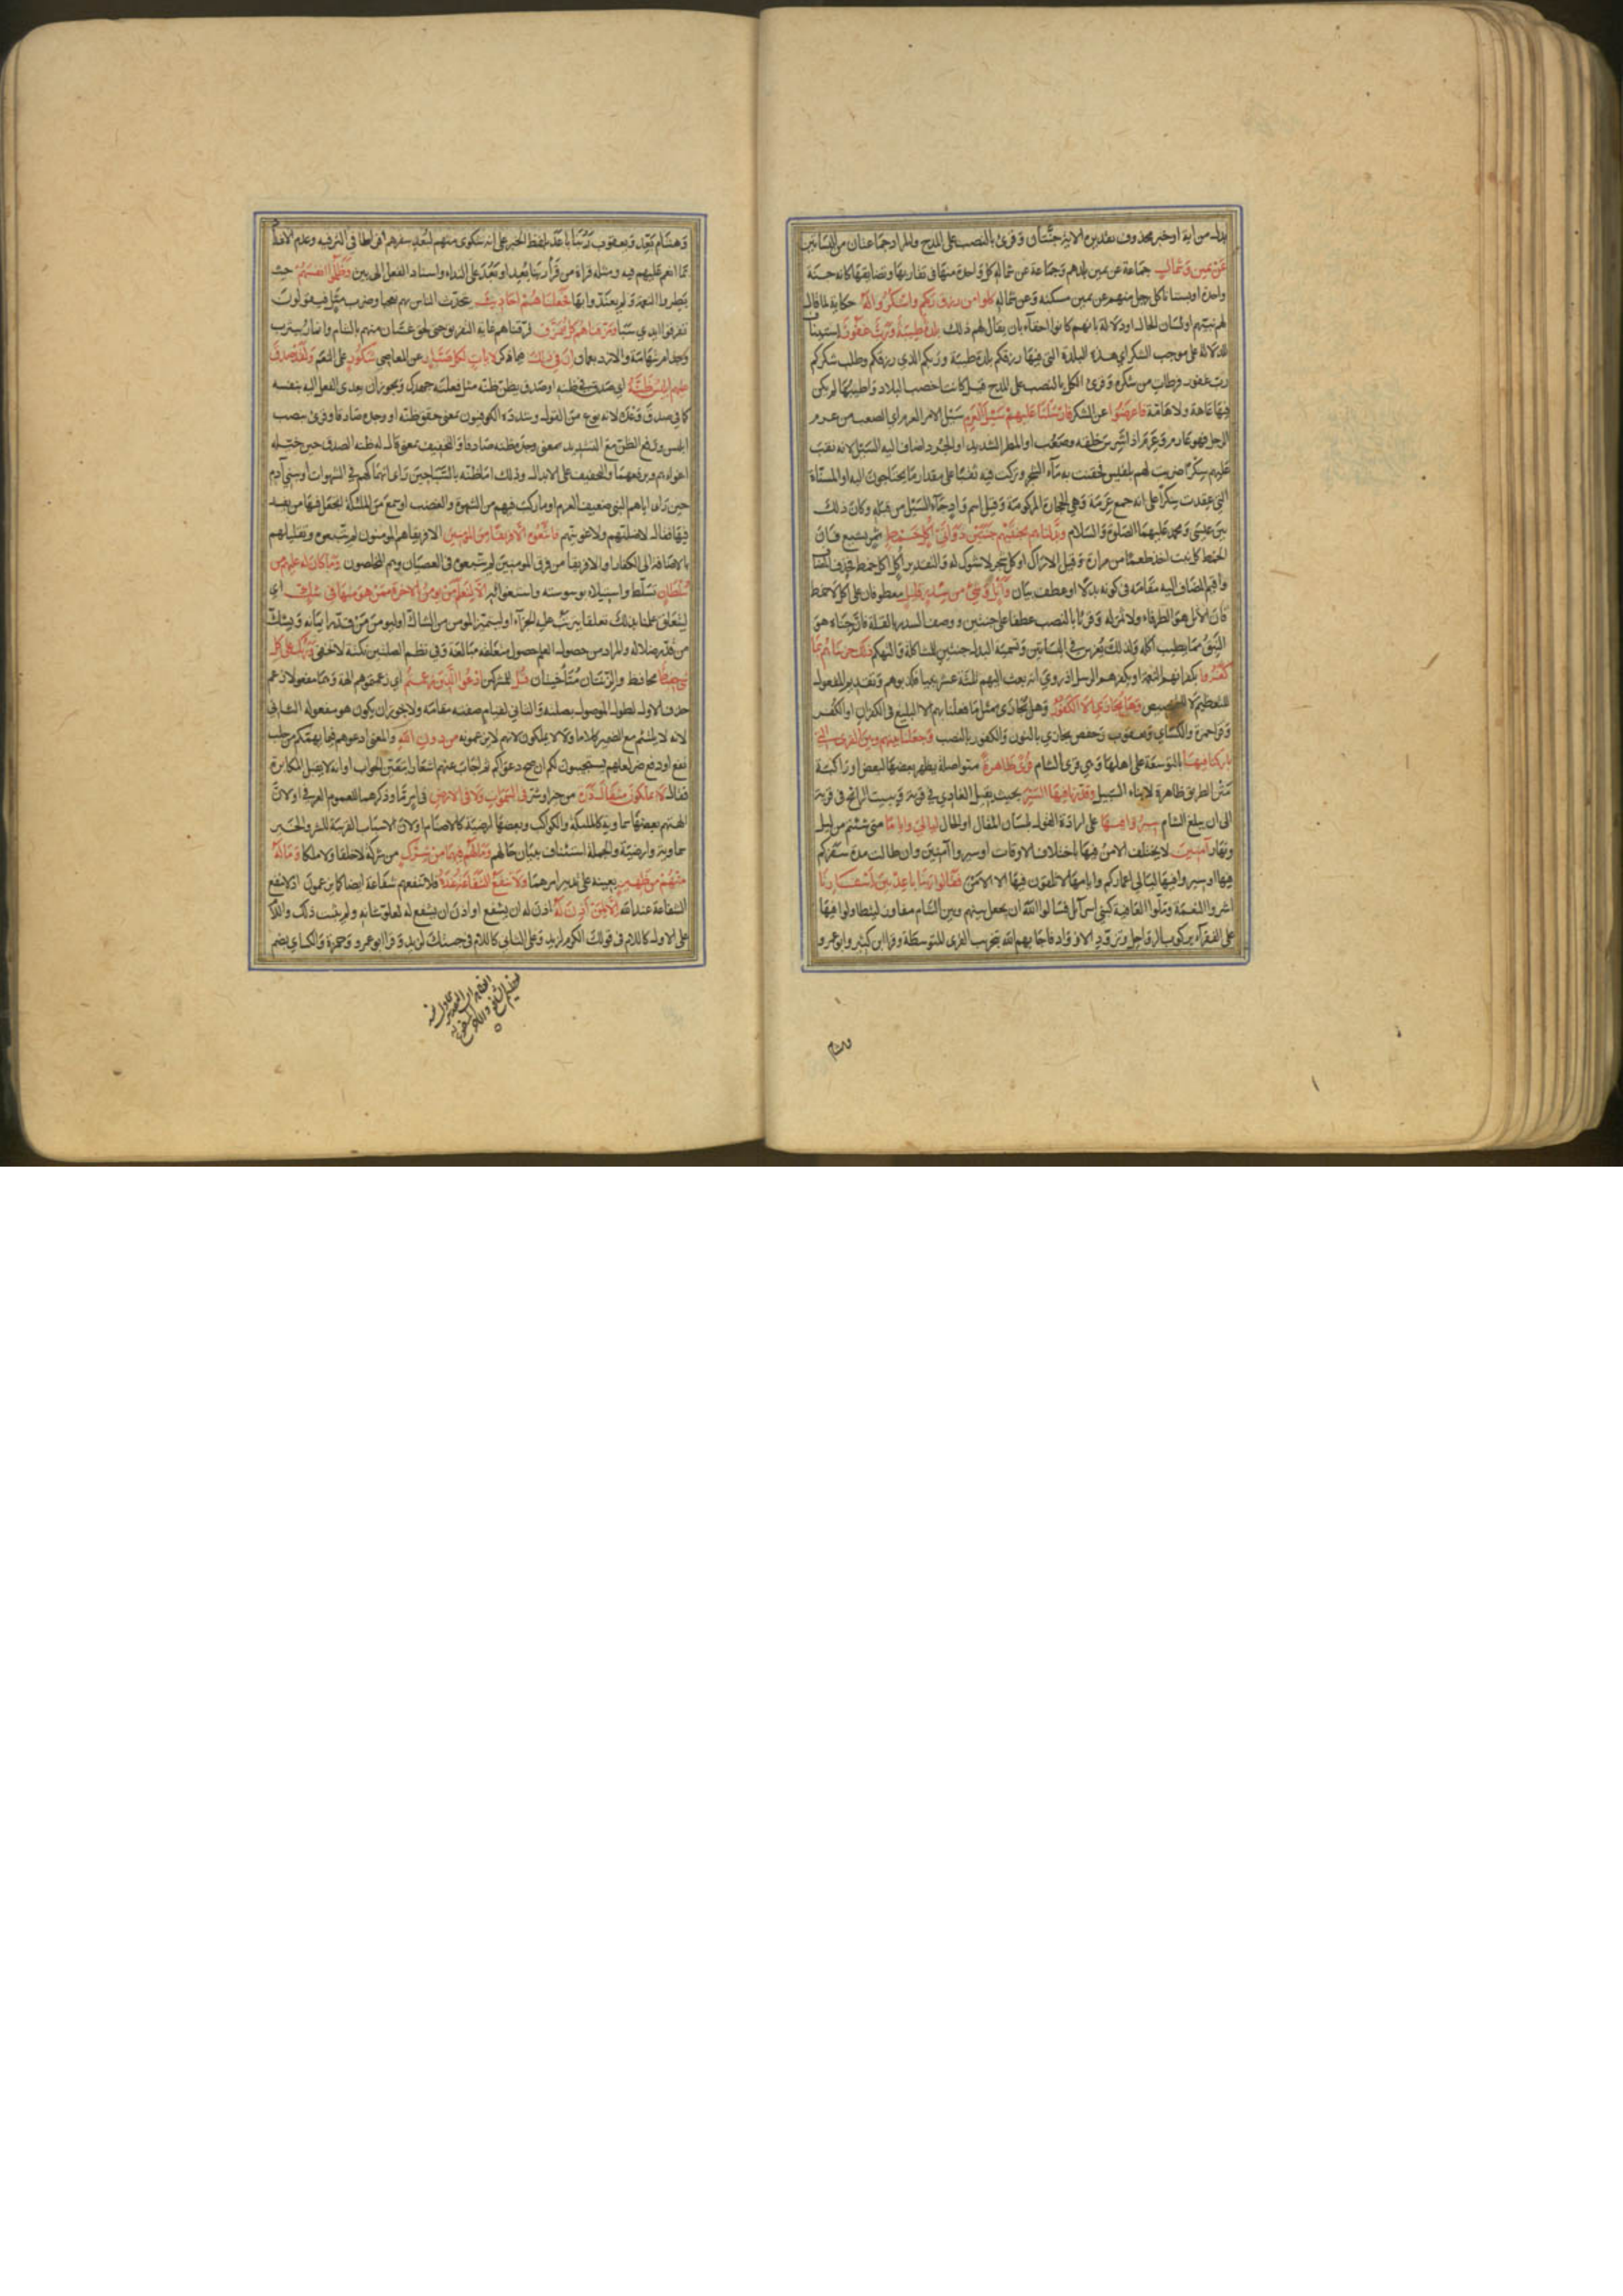 بدل من آية او خبر محذوف تقديره الاية جنتان وقرئ بالنصب على المدح والمراد جماعتان من البساتين
عَنْ يمين وَشمالٍ جماعة عن يمين بلدهم وجماعة عن شماله كل واحدة منها في تقاربها وتضايقها كانه جنة
واحدة او بستانا كل رجل منهم عن يمين مسكنه وعن شماله كلوا من رزق ربكم واشكروا له حكاية لما قال
لهم نبيهم او لسان الحال او دلالة بانهم كانوا احقاء بان يقال لهم ذلك بلدة طيبة وَرَبٌّ غفور استيناف
للدلالة على موجب الشكر اي هذه البلدة التي فيها رزقكم بلدة طيبة وربكم الذي رزقكم وطلب شكركم
رب غفور فرطات من شكره وقرئ الكل بالنصب على المدح قيل كانت اخصب البلاد واطيبها لم يكن
فيها عاهة ولا هامة فاعرضوا عن الشكر فارسلنا عليهم سيل العرم سيل الامر العرم اي الصعب من عرم
الرجل فهو عارم وعرم اذا شرس خلقه وصعب او المطر الشديد او الجرذ اضاف اليه السيل لانه نقب
عليهم سكرا ضربت لهم بلقيس فحقنت به ماء الشجر وتركت فيه ثقبا على مقدار ما يحتاجون اليه او المسناة
التي عقدت سكرا على انه جمع عرمة وهي الحجارة المركومة وقيل اسم واد جاء السيل من قبله وكان ذلك
بين عيسى ومحمد عليهما الصلوة والسلام وبدلناهم بجنتيهم جنتين ذواتي اكل خمط ثمر بشع فان
الخمط كل نبت اخذ طعما من مرارة وقيل الاراك او كل شجر لا شوك له والتقدير اُكُلٍ اكل خمط فحذف المضاف
واقيم المضاف اليه مقامه في كونه بدلا او عطف بيان وَاَثْلٍ وشئ من سدر قليل معطوفان على اكل لا خمط
فان الاثل هو الطرفاء ولا ثمر له وقرئا بالنصب عطفا على جنتين ووصف السدر بالقلة فان جناه هو
النبق مما يطيب اكله ولذلك يغرس في البساتين وتسمية البدل جنتين للمشاكلة والتهكم ذلك جزيناهم بما
كفروا بكفرانهم النعمة او بكفرهم الرسل اذ روي انه بعث اليهم ثلثة عشر نبيا فكذبوهم وتقديم المفعول
للتعظيم لا للتخصيص وهل نجازى الا الكفور وهل يجازى بمثل ما فعلنا بهم الا البليغ في الكفران او الكفر
وقرا حمزة والكسائي ويعقوب وحفص نجازي بالنون والكفور بالنصب وجعلنا بينهم وبين القرى التي
باركنا فيها بالتوسعة على اهلها وهي قرى الشام قرى ظاهرة متواصلة يظهر بعضها لبعض او راكبة
متن الطريق ظاهرة لابناء السبيل وقدرنا فيها السير بحيث يقيل الغادي في قرية ويبيت الرائح في قرية
الى ان يبلغ الشام سيروا فيها على ارادة القول بلسان المقال او الحال ليالي واياما متى شئتم من ليل
ونهار آمنين لا يختلف الامن فيها باختلاف الاوقات او سيروا آمنين وان طالت مدة سفركم
فيها او سيروا فيها ليالي اعماركم وايامها لا تلقون فيها الا الامن فقالوا ربنا باعد بين اسفارنا
اشروا النعمة وملوا العافية كبني اسرائل فسالوا الله ان يجعل بينهم وبين الشام مفاوز ليتطاولوا فيها
على الفقراء بركوب الرواحل وتزود الازواد فاجابهم الله بتخريب القرى المتوسطة وقرا ابن كثير وابو عمرو
وهشام
وهشام بَعِّد ويعقوب رَبُّنا باعَدَ بلفظ الخبر على انه شكوى منهم لبُعد سفرهم افراطا في الترفيه وعدم الاعتداد
بما انعم عليهم فيه ومثله قراءة من قرا ربنا بعد او بَعُدَ على النداء واسناد الفعل الى بين وظلموا انفسهم حيث
بطروا النعمة ولم يعتدوا بها فجعلناهم احاديث يتحدث الناس بهم تعجبا وضرب مثل فيقولون
تفرقوا ايدي سبا ومزقناهم كل ممزق فرقناهم غاية التفريق حتى لحق غسان منهم بالشام وانمار بيثرب
وجذام بتهامة والازد بعمان ان في ذلك فيما ذكر لايات لكل صبار عن المعاصي شكور على النعم ولقد صدق
عليهم ابليس ظنه اي صدق في ظنه او صدق يظن ظنه مثل فعلته جهدك ويجوز ان يعدى الفعل اليه بنفسه
كما في صدق وعده لانه نوع من القول وشدده الكوفيون بمعنى حقق ظنه او وجده صادقا وقرئ بنصب
ابليس ورفع الظن مع التشديد بمعنى وجده ظنه صادقا والتخفيف بمعنى قال له ظنه الصدق حين خيله
اغواءهم وبرفعهما والتخفيف على الابدال وذلك اما ظنه بالسبا حين راى انهماكهم في الشهوات او ببني آدم
حين راى اباهم النبي ضعيف العزم او ما ركب فيهم من الشهوة والغضب او سمع من الملئكة اتجعل فيها من يفسد
فيها فقال لاضلنهم ولاغوينهم فاتبعوه الا فريقا من المؤمنين الا فريقا هم المؤمنون لم يتبعوه وتقليلهم
بالاضافة الى الكفار او الا فريقا من فرق المؤمنين لم يتبعوه في العصيان وهم المخلصون وما كان له عليهم من
سلطان تسلط واستيلاء بوسوسته واستغوائه الا لنعلم من يومن بالاخرة ممن هو منها في شك اي
ليتعلق علمنا بذلك تعلقا يترتب عليه الجزاء او ليتميز المومن من الشاك او ليومن من قدر ايمانه ويشك
من قدر ضلاله والمراد من حصول العلم حصول متعلقه مبالغة وفي نظم الصلتين نكتة لا تخفى وربك على كل
شئ حفيظ محافظ والزنتان متآخيتان قل للمشركين ادعوا الذين زعمتم اي زعمتموهم الهة وهما مفعولا زعم
حذف الاول لطول الموصول بصلته والثاني لقيام صفته مقامه ولا يجوز ان يكون هو مفعوله الثاني
لانه لا يلتئم مع الضمير كلاما ولا لا يملكون لانهم لا يزعمونه من دون الله والمعنى ادعوهم فيما يهمكم من جلب
نفع او دفع ضر لعلهم يستجيبون لكم ان صح دعواكم ثم اجاب عنهم اشعارا بتعين الجواب وانه لا يقبل المكابرة
فقال لا يملكون مثقال ذرة من خير او شر في السموات ولا في الارض في امر ما وذكرهما للعموم العرفي او لان
الهتهم بعضها سماوية كالملئكة والكواكب وبعضها ارضية كالاصنام او لان الاسباب القريبة للشر والخير
سماوية وارضية والجملة استئناف لبيان حالهم وما لهم فيهما من شرك من شركة لا خلقا ولا ملكا وماله
منهم من ظهير يعينه على تدبير امرهما ولا تنفع الشفاعة عنده فلا تنفعهم شفاعة ايضا كما يزعمون اذ لا تنفع
الشفاعة عند الله الا لمن اذن له اذن له ان يشفع او اذن ان يشفع له لعلو شانه ولم يثبت ذلك واللام
على الاول كاللام في قولك الكرم لزيد وعلى الثاني كاللام في جئتك لزيد وقرا ابو عمرو وحمزة والكسائي بضم